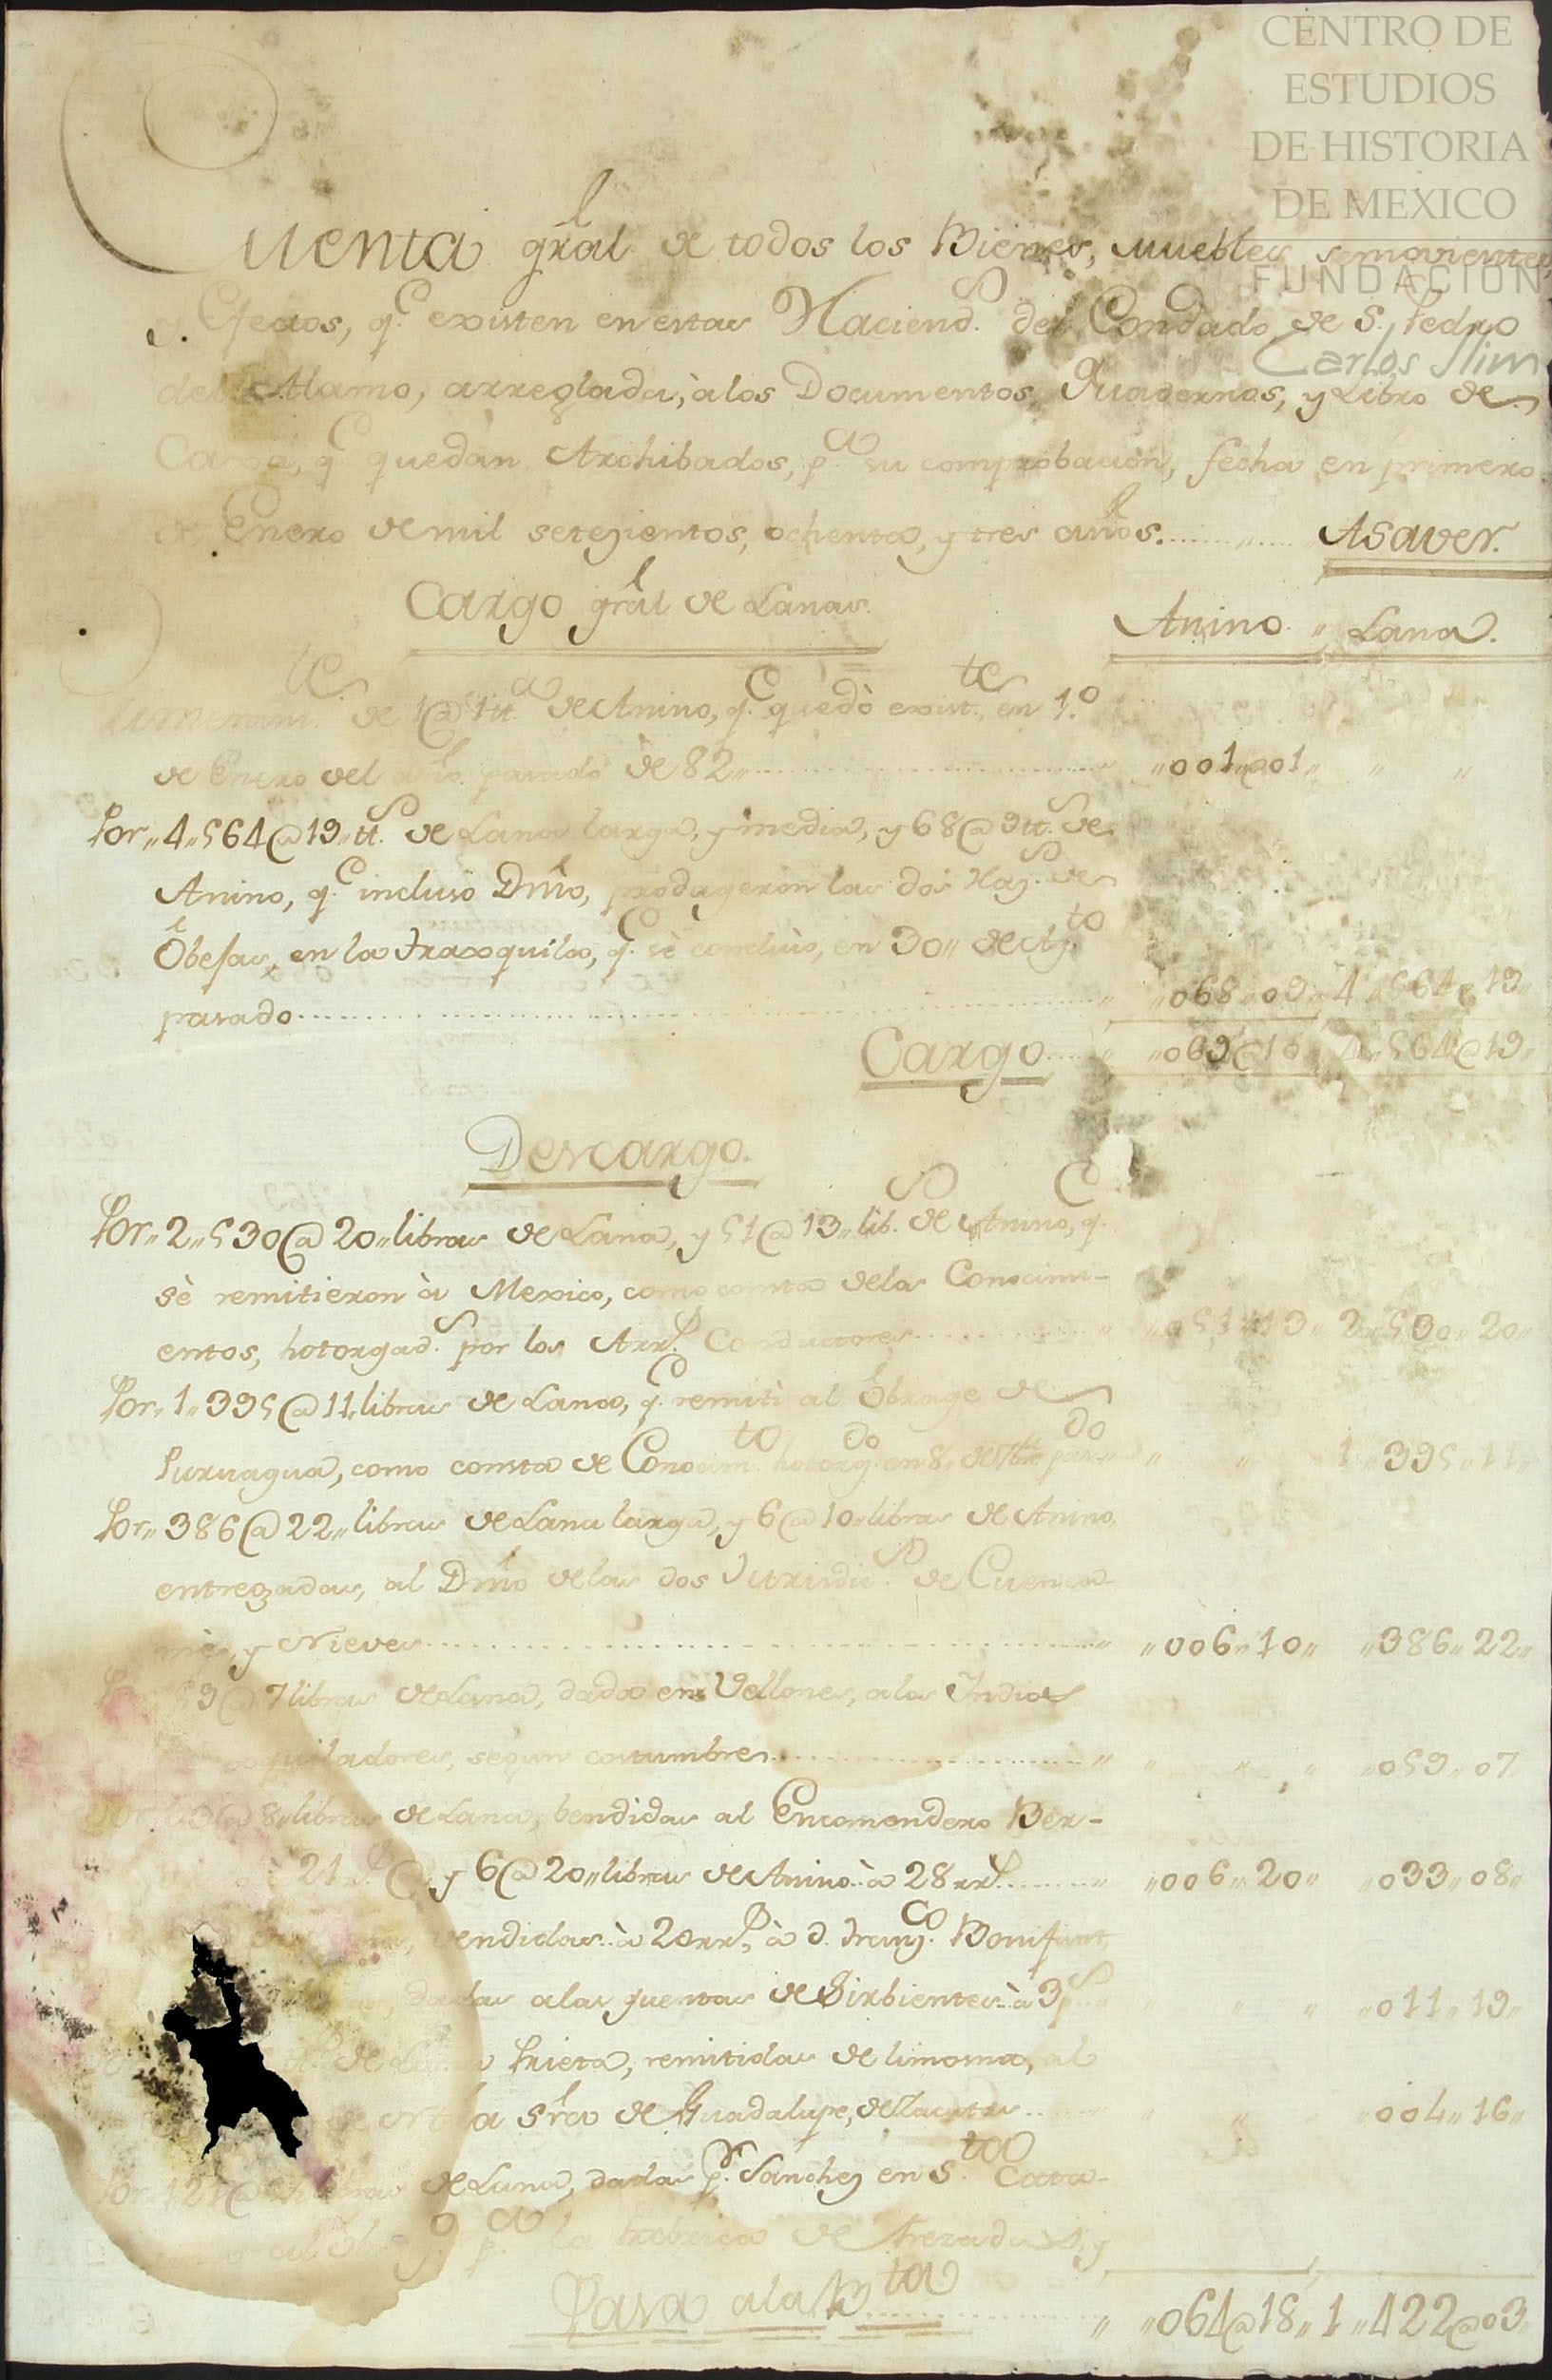 CENTRO DE
ESTUDIOS
DE HISTORIA
DE MEXICO
FUNDACIÓN
Carlos Slim
Cuenta gr̃al de todos los Bienes, muebles semovientes,
y Efectos, q.e existen en estas Haciend.s del Condado de S. Pedro
del Alamo, arreglada, à los Documentos, Quadernos, y Libro de
Caxa, q.e quedan Archibados, p.a su comprobacion, fecha en primero
de Enero de mil setezientos, ochenta, y tres años. Asaver.
Cargo gr̃al de Lanas.
Anino. Lana.
Primeram.te de 1@ 1tt.a de Anino, q.e quedò exist.te en 1.o
de Enero del año pasado de 82 " 001"@01 " " "
Por " 4 " 564@19 " tt.s de Lana larga, y media, y 68@9tt.s de
Anino, q.e incluso Dm̃o, produgeron las dos Haz.s de
Obejas, en la Trasquila, q.e sè concluio, en 30 " de Ag.to
pasado " 068 " 09 " 4 " 564 " 19 "
Cargo " 069@10 " 4 " 564@19 "
Descargo.
Por " 2 " 530@20 " libras de Lana, y 51@13 " lib.s de Anino, q.e
sè remitieron à Mexico, como consta de los Conocimi-
entos, hotorgad.s por los Arr.s Conductores " 051 " 13 " 2 " 530 " 20 "
Por " 1 " 395@11 " libras de Lana, q.e remitì al Obrage de
Puruagua, como consta de Conocim.to hotorg.do en 8 " de 7bre pas.do " " " 1 " 395 " 11 "
Por " 386@22 " libras de Lana larga, y 6@10 " libras de Anino,
entregadas, al Dm̃o de las dos Jurisdic.s de Cuenca-
mè, y Nieves " 006 " 10 " " 386 " 22 "
Por 59@7 libras de Lana, dada en Vellones, a los Indios
Trasquiladores, segun costumbre " " " " 059 " 07
8 " libras de Lana, bendidas al Encomendero Ber-
21 r.s @, y 6@20 " libras de Anino à 28 rr.s " 006 " 20 " " 033 " 08 "
vendidas à 20 rr.s à D. Franz.co Bonifant,
dadas a las quentas de Sirbientes à 3p.s " " " " 011 " 19 "
de Lana Prieta, remitidas de limosna, al
de Ntra Sr̃a de Guadalupe, de Zacatecas " " " " 004 " 16 "
Por 121@ libras de Lana, dadas p.r Sanchez en S.ta Cata-
p.a la fabrica de frezadas, y
Pasa a la B.ta " 064@18 " 1 " 422@03 "